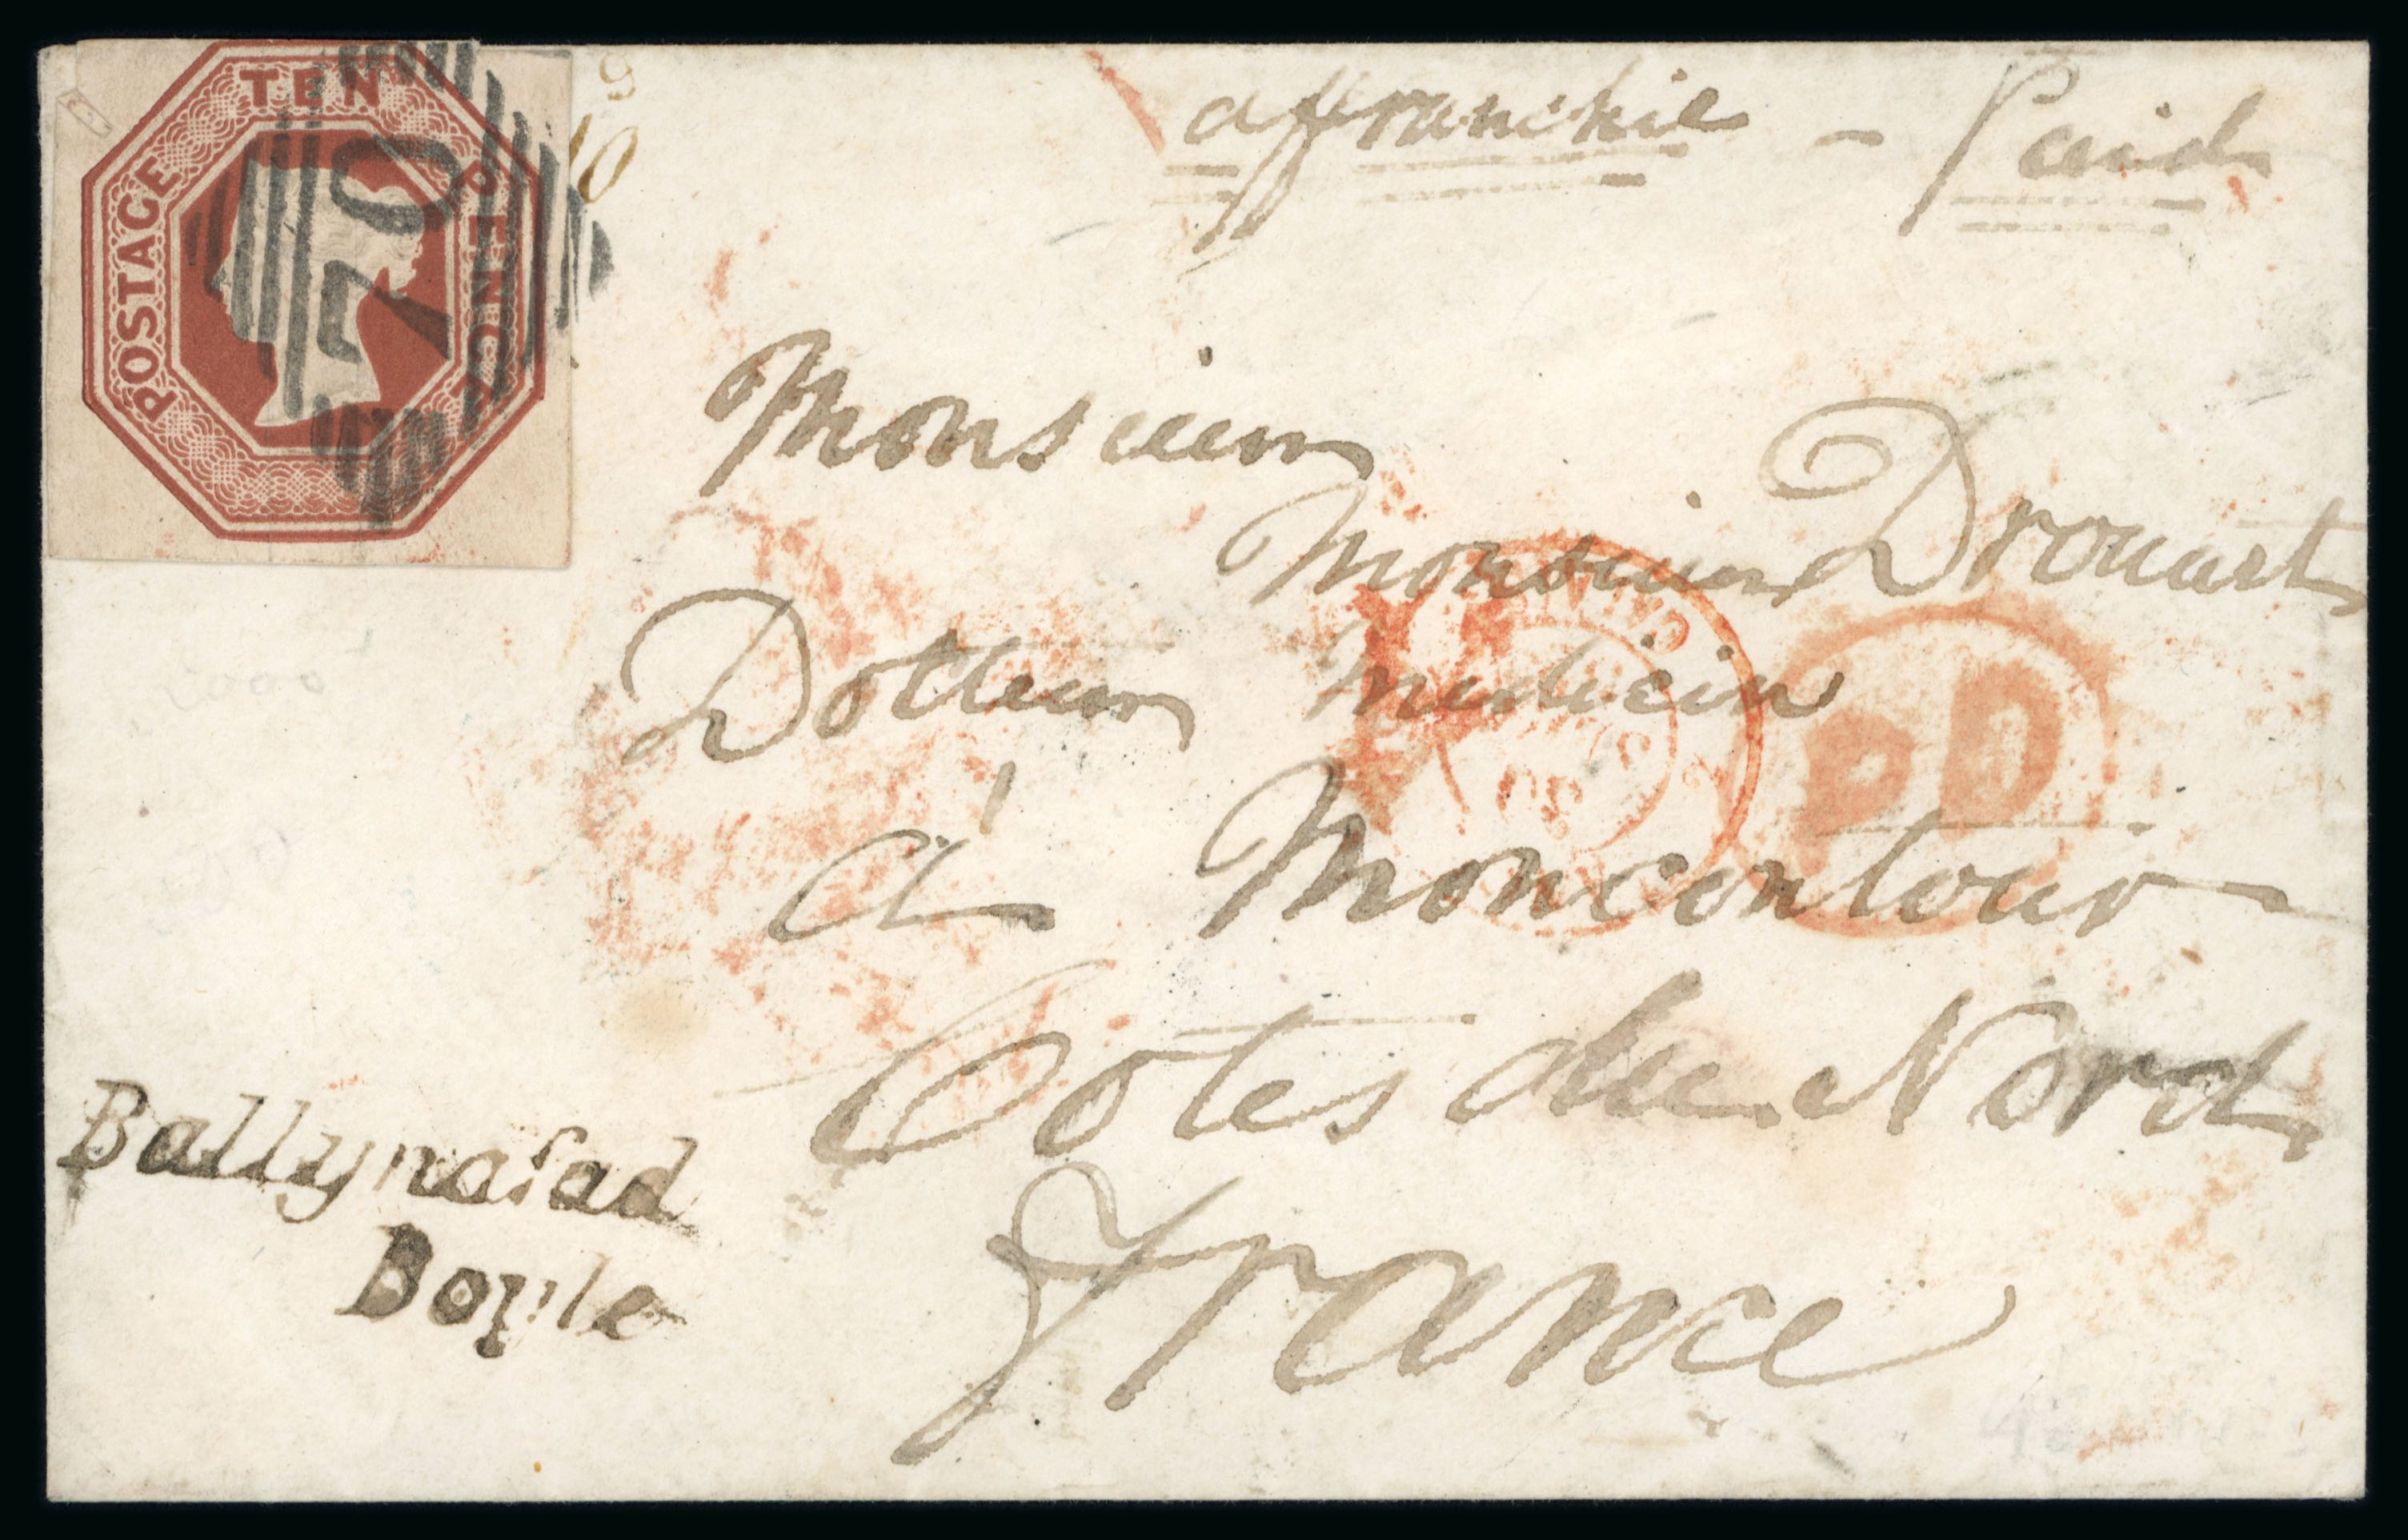 TEN
POSTAGE
PENCE
70
affranchie - Paid
Monsieur
Monsieur Drouart
Dotteur Medicin
PD
à Moncontour
Cotes du Nord
France
Ballynafad
Boyle